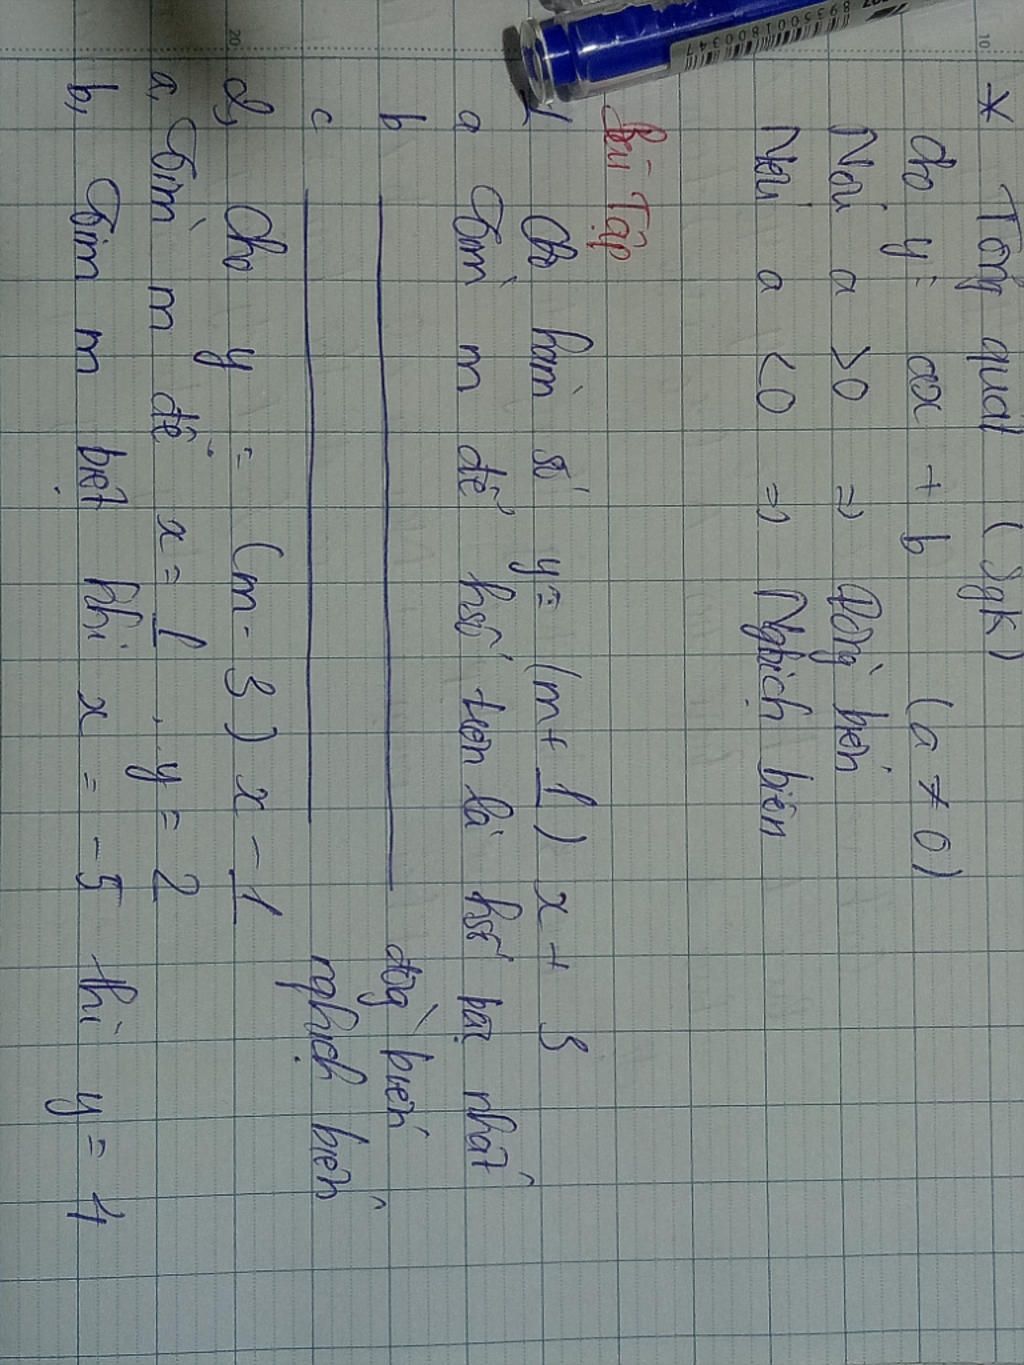 * Tổng quát (Sgk)
cho y = ax + b (a ≠ 0)
Nếu a >0 => Đồng biến
Nếu a <0 => Nghịch biến
Bài Tập
1, Cho hàm số y = (m+1) x + 3
a Tìm m để hsố trên là hsố bậc nhất
b ——— đồng biến
c ——— nghịch biến
2, Cho y = (m - 3) x - 1
a, Tìm m để x = 1, y = 2
b, Tìm m biết khi x = -5 thì y = 4
8935001800347